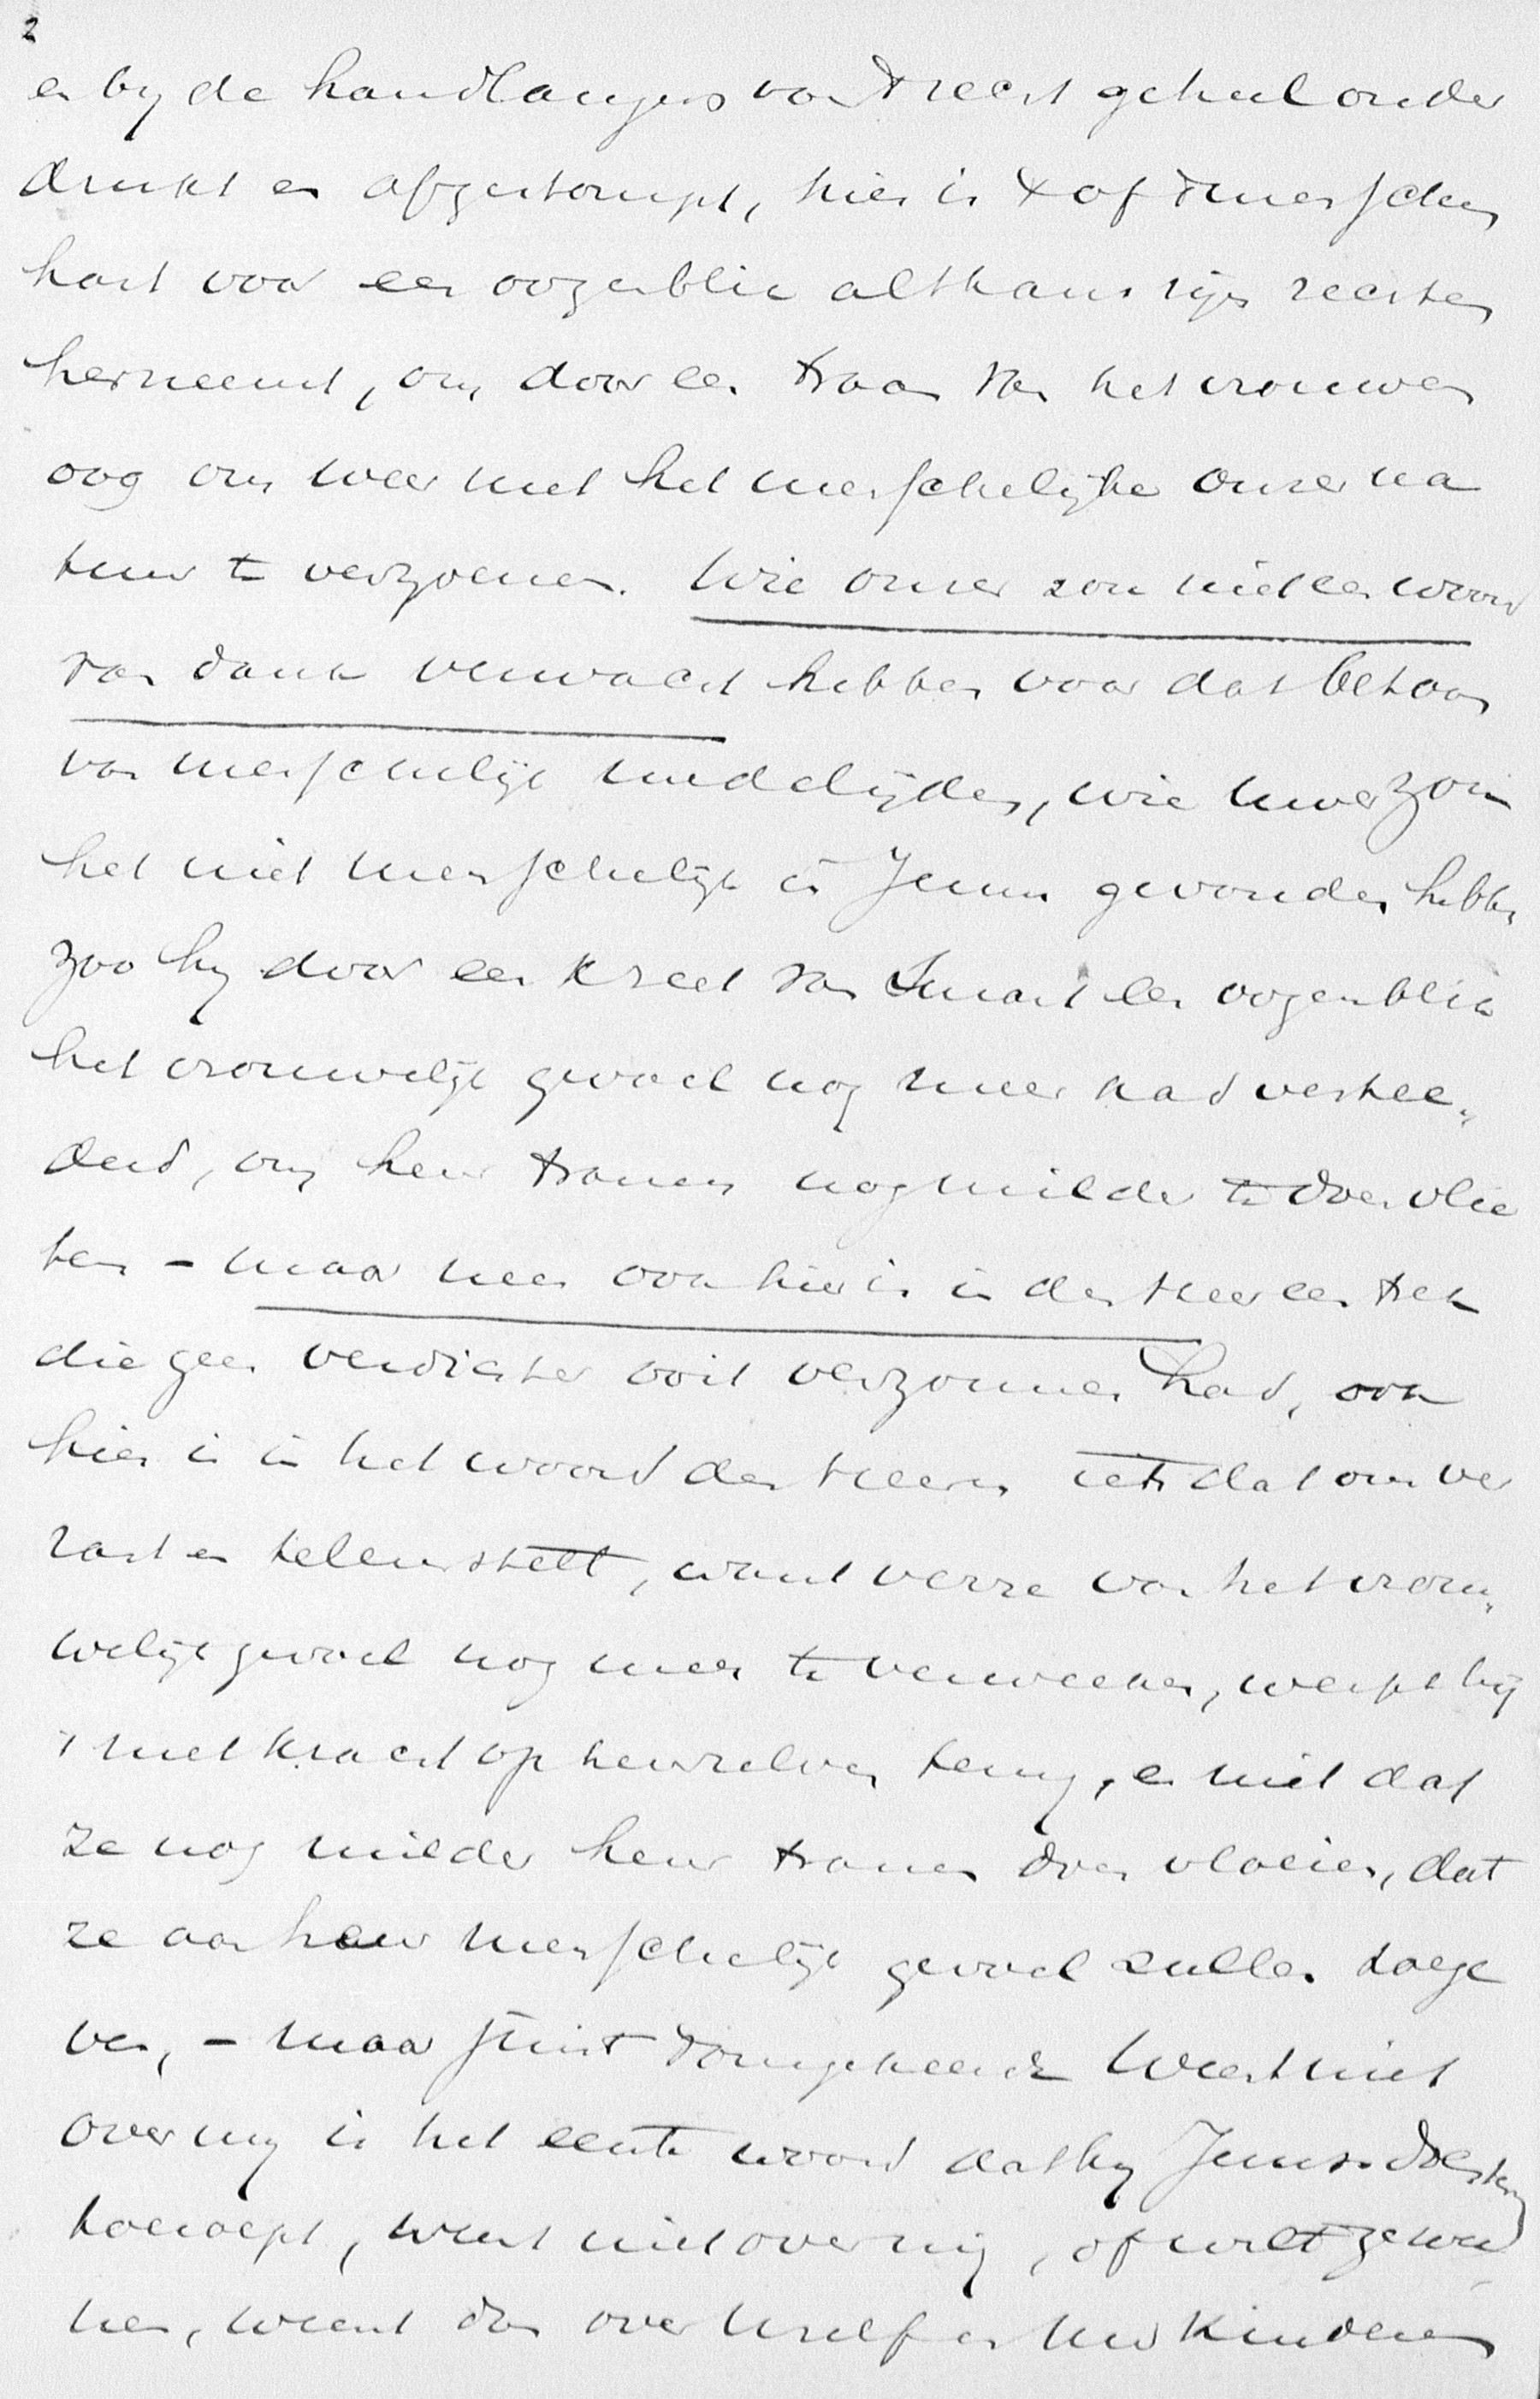 2
en by de handlangers van 't recht geheel onder
drukt en afgestompt, hier is 't of 't menschen
hart voor een oogenblik althans zijn rechten
herneemt, om door een traan van het vrouwen
oog ons weer met het menschelijke onzer na
tuur te verzoenen. Wie onzer zou niet een woord
van dank verwacht hebben voor dat betoon
van menschelijk medelijden, wie uwer zou
het niet menschelijk in Jezus gevonden hebben
zoo hy door een kreet van smart een oogenblik
het vrouwelijk gevoel nog meer had vertee„
derd, om heur tranen nog milder te doen vlie
ten – maar neen ook hier is in den Heer een trek
die geen verdichter ooit verzonnen had, ook
hier is in het woord des Heeren iets dat ons ver
rast en teleurstelt, want verre van het vrou„
welijk gevoel nog meer te verweeken, werpt hij
't met kracht op heurzelven terug, en niet dat
ze nog milder heur tranen doen vloeien, dat
ze aan heur menschelijk gevoel zullen toege
ven, – maar juist 't omgekeerde Weent niet
over my is het eerste woord dat hy Jeruz. dochteren
toeroept, weent niet over mij, of wilt ge wee
nen, weent dan over Uzelf en Uw kinderen